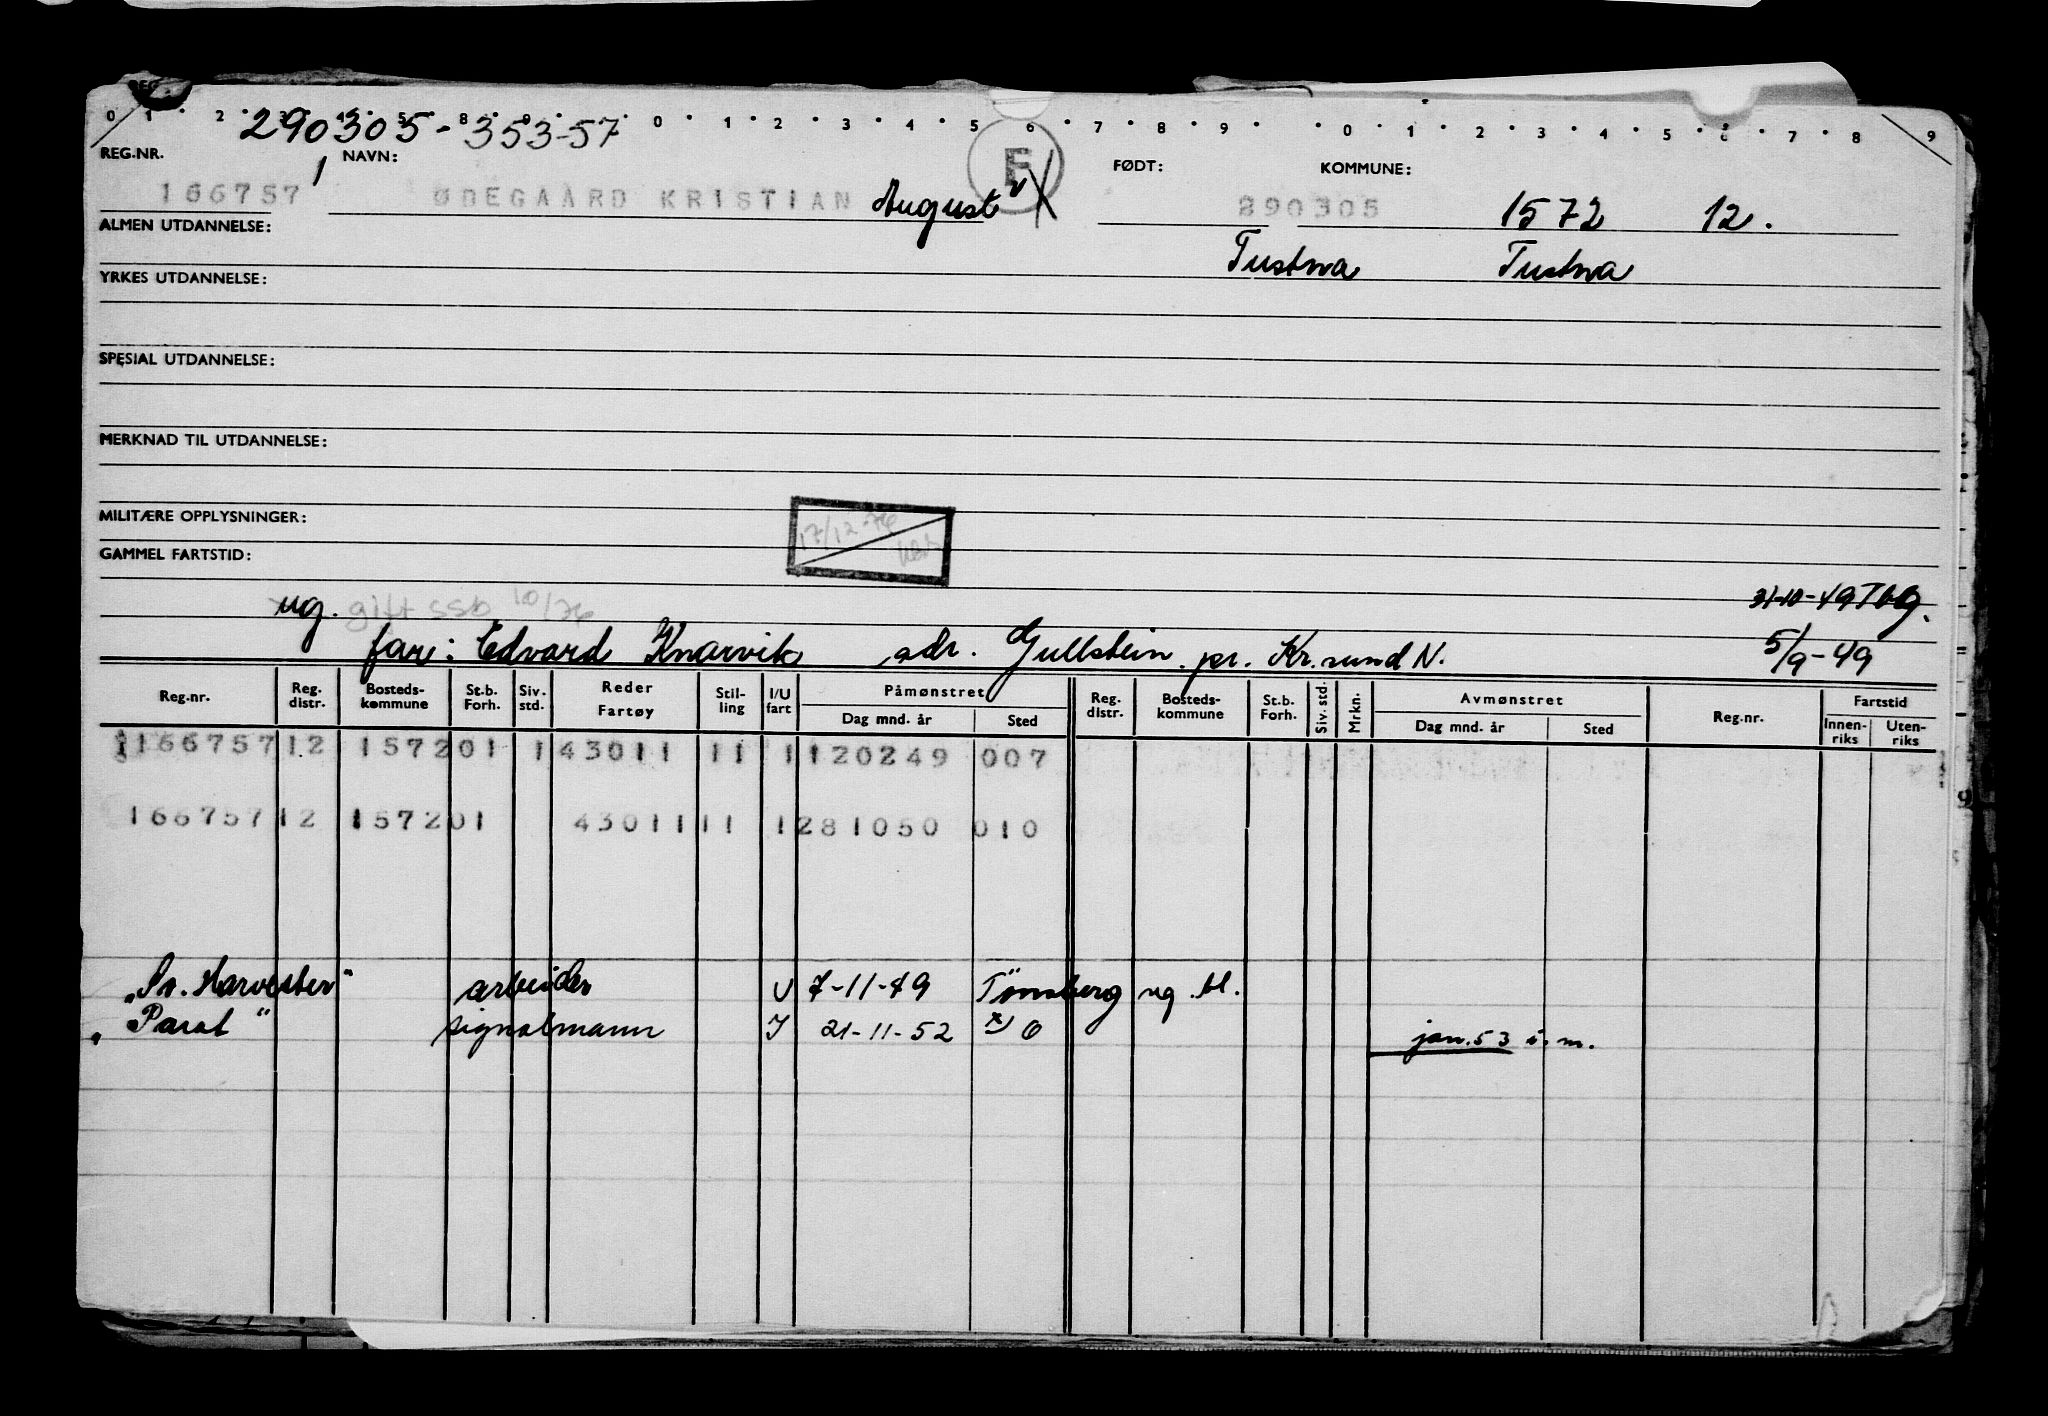 0 1 2 3 4 5 8 9 0 1 2 3 4 5 6 7 8 9 0 1 2 3 4 5 6 7 8 9
290305-353-57
REG.NR. NAVN: F FØDT: KOMMUNE:
166757 ØDEGAARD KRISTIAN August 290305 1572 12.
ALMEN UTDANNELSE:
Tustna Tustna
YRKES UTDANNELSE:
SPESIAL UTDANNELSE:
MERKNAD TIL UTDANNELSE:
MILITÆRE OPPLYSNINGER:
17/12-76
GAMMEL FARTSTID:
ug. gift ssb 10/76 31-10-49 Tbg.
far: Edvard Knarvik adr. Gullstein pr. Kr.sund N. 5/9-49
Reg.nr. Reg. distr. Bosteds-kommune St.b. Forh. Siv. std. Reder Fartøy Stil-ling I/U fart Påmønstret Dag mnd. år Sted Reg. distr. Bosteds-kommune St.b. Forh. Siv. std. Mrkn. Avmønstret Dag mnd. år Sted Reg.nr. Fartstid Innen-riks Uten-riks
166757 12 1572 01 1 43011 11 1 120249 007
166757 12 1572 01 43011 11 1 281050 010
"Sv. Harvester" arbeider U 7-11-49 Tønsberg ug. bl.
"Parat" signalmann I 21-11-52 x) 6 jan. 53 i. m.